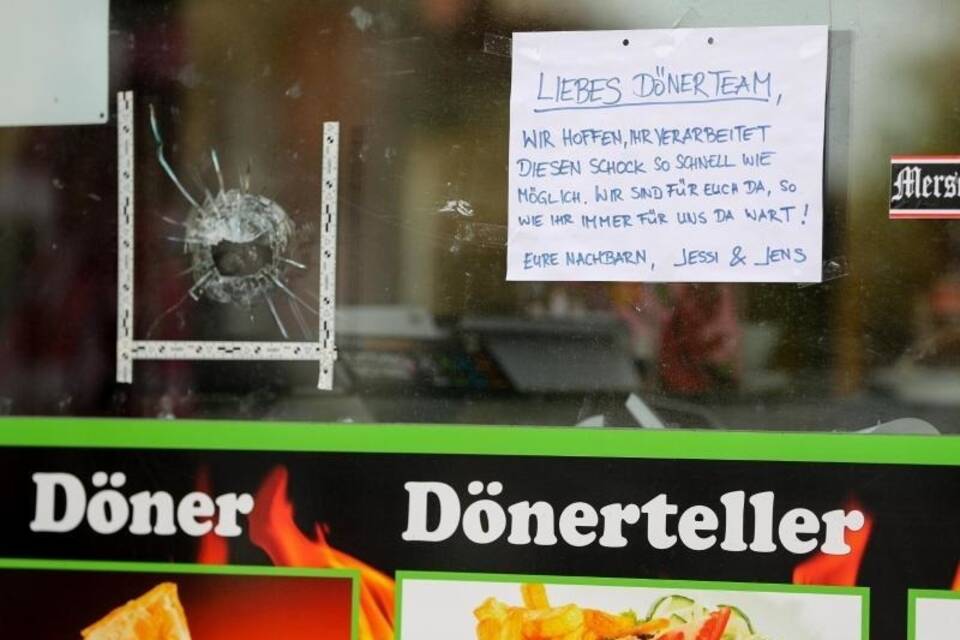 LIEBES DÖNERTEAM,
WIR HOFFEN, IHR VERARBEITET
DIESEN SCHOCK SO SCHNELL WIE
MÖGLICH. WIR SIND FÜR EUCH DA, SO
WIE IHR IMMER FÜR UNS DA WART!
EURE NACHBARN, JESSI & JENS
Döner
Dönerteller